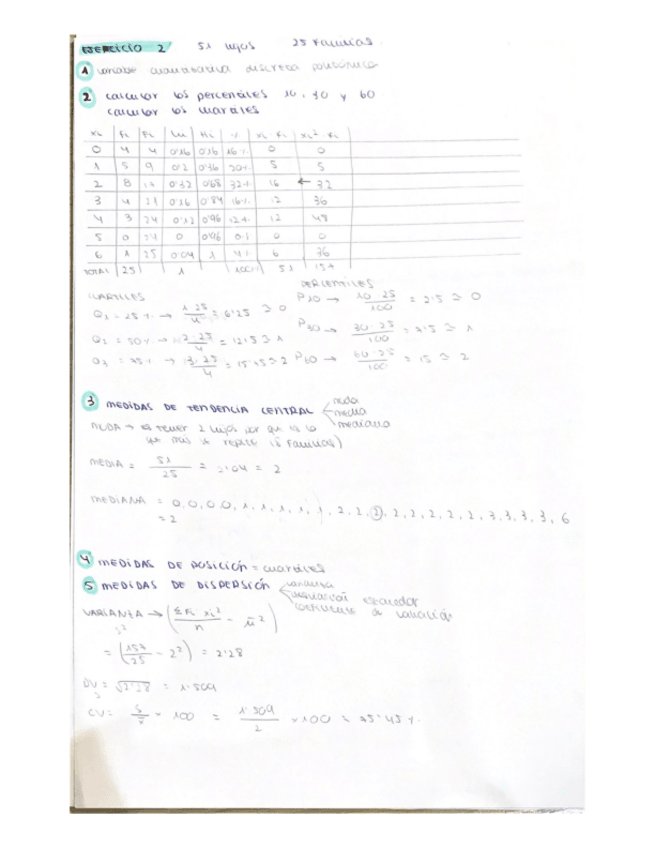 EJERCICIO 2 51 hijos 25 Familias
1 variable cuantitativa discreta
2 calcular los percentiles 10, 30 y 60
calcular los cuartiles
xi fi Fi hi Hi % xi·fi xi²·fi
0 4 4 0'16 0'16 16% 0 0
1 5 9 0'2 0'36 20% 5 5
2 8 17 0'32 0'68 32% 16 ← 32
3 4 21 0'16 0'84 16% 12 36
4 3 24 0'12 0'96 12% 12 48
5 0 24 0 0'96 0% 0 0
6 1 25 0'04 1 4% 6 36
TOTAL 25 1 100% 51 157
CUARTILES PERCENTILES
Q1 = 25% → 1·25/4 = 6'25 ≃ 0 P10 → 10·25/100 = 2'5 ≃ 0
Q2 = 50% → 2·25/4 = 12'5 ≃ 1 P30 → 30·25/100 = 7'5 ≃ 1
Q3 = 75% → 3·25/4 = ≃ 2 P60 → 60·25/100 = 15 ≃ 2
3 MEDIDAS DE TENDENCIA CENTRAL moda media mediana
MODA → tener 2 hijos por que es lo
que más se repite (8 Familias)
MEDIA = 51/25 = 2'04 = 2
MEDIANA = 0,0,0,0,1,1,1,1,1, 2,2,2,2,2,2,2,2,3,3,3,3, 6
= 2
4 MEDIDAS DE POSICIÓN = cuartiles
5 MEDIDAS DE DISPERSIÓN varianza
desviación
coeficiente de variación
VARIANZA → (Σ Fi xi²/n - x̄²)
s²
= (157/25 - 2²) = 2'28
DV = √2'28 = 1'509
s
CV = s/x̄ × 100 = 1'509/2 × 100 = 75'45%